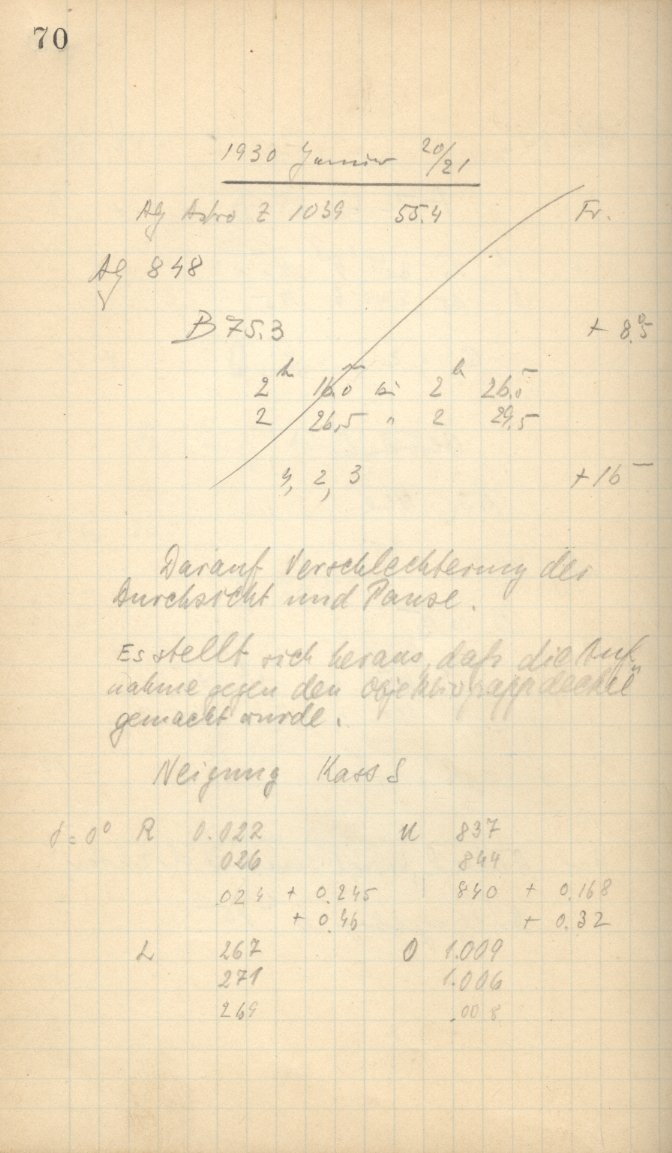 70
1930 Januar 20/21
Ag Astro Z 1039 55.4 Fr.
Ag 848
B 75.3 + 8.°5
2h 16.0m bis 2h 26.5
2 26.5 " 2 29.5
4, 2, 3 + 16
Darauf Verschlechterung der
Durchsicht und Pause.
Es stellt sich heraus, daß die Auf-
nahme gegen den Objektivklappdeckel
gemacht wurde.
Neigung Kass S
δ = 0° R 0.022 U 837
026 844
.024 + 0.245 840 + 0.168
+ 0.46 + 0.32
L 267 O 1.009
271 1.006
269 .008